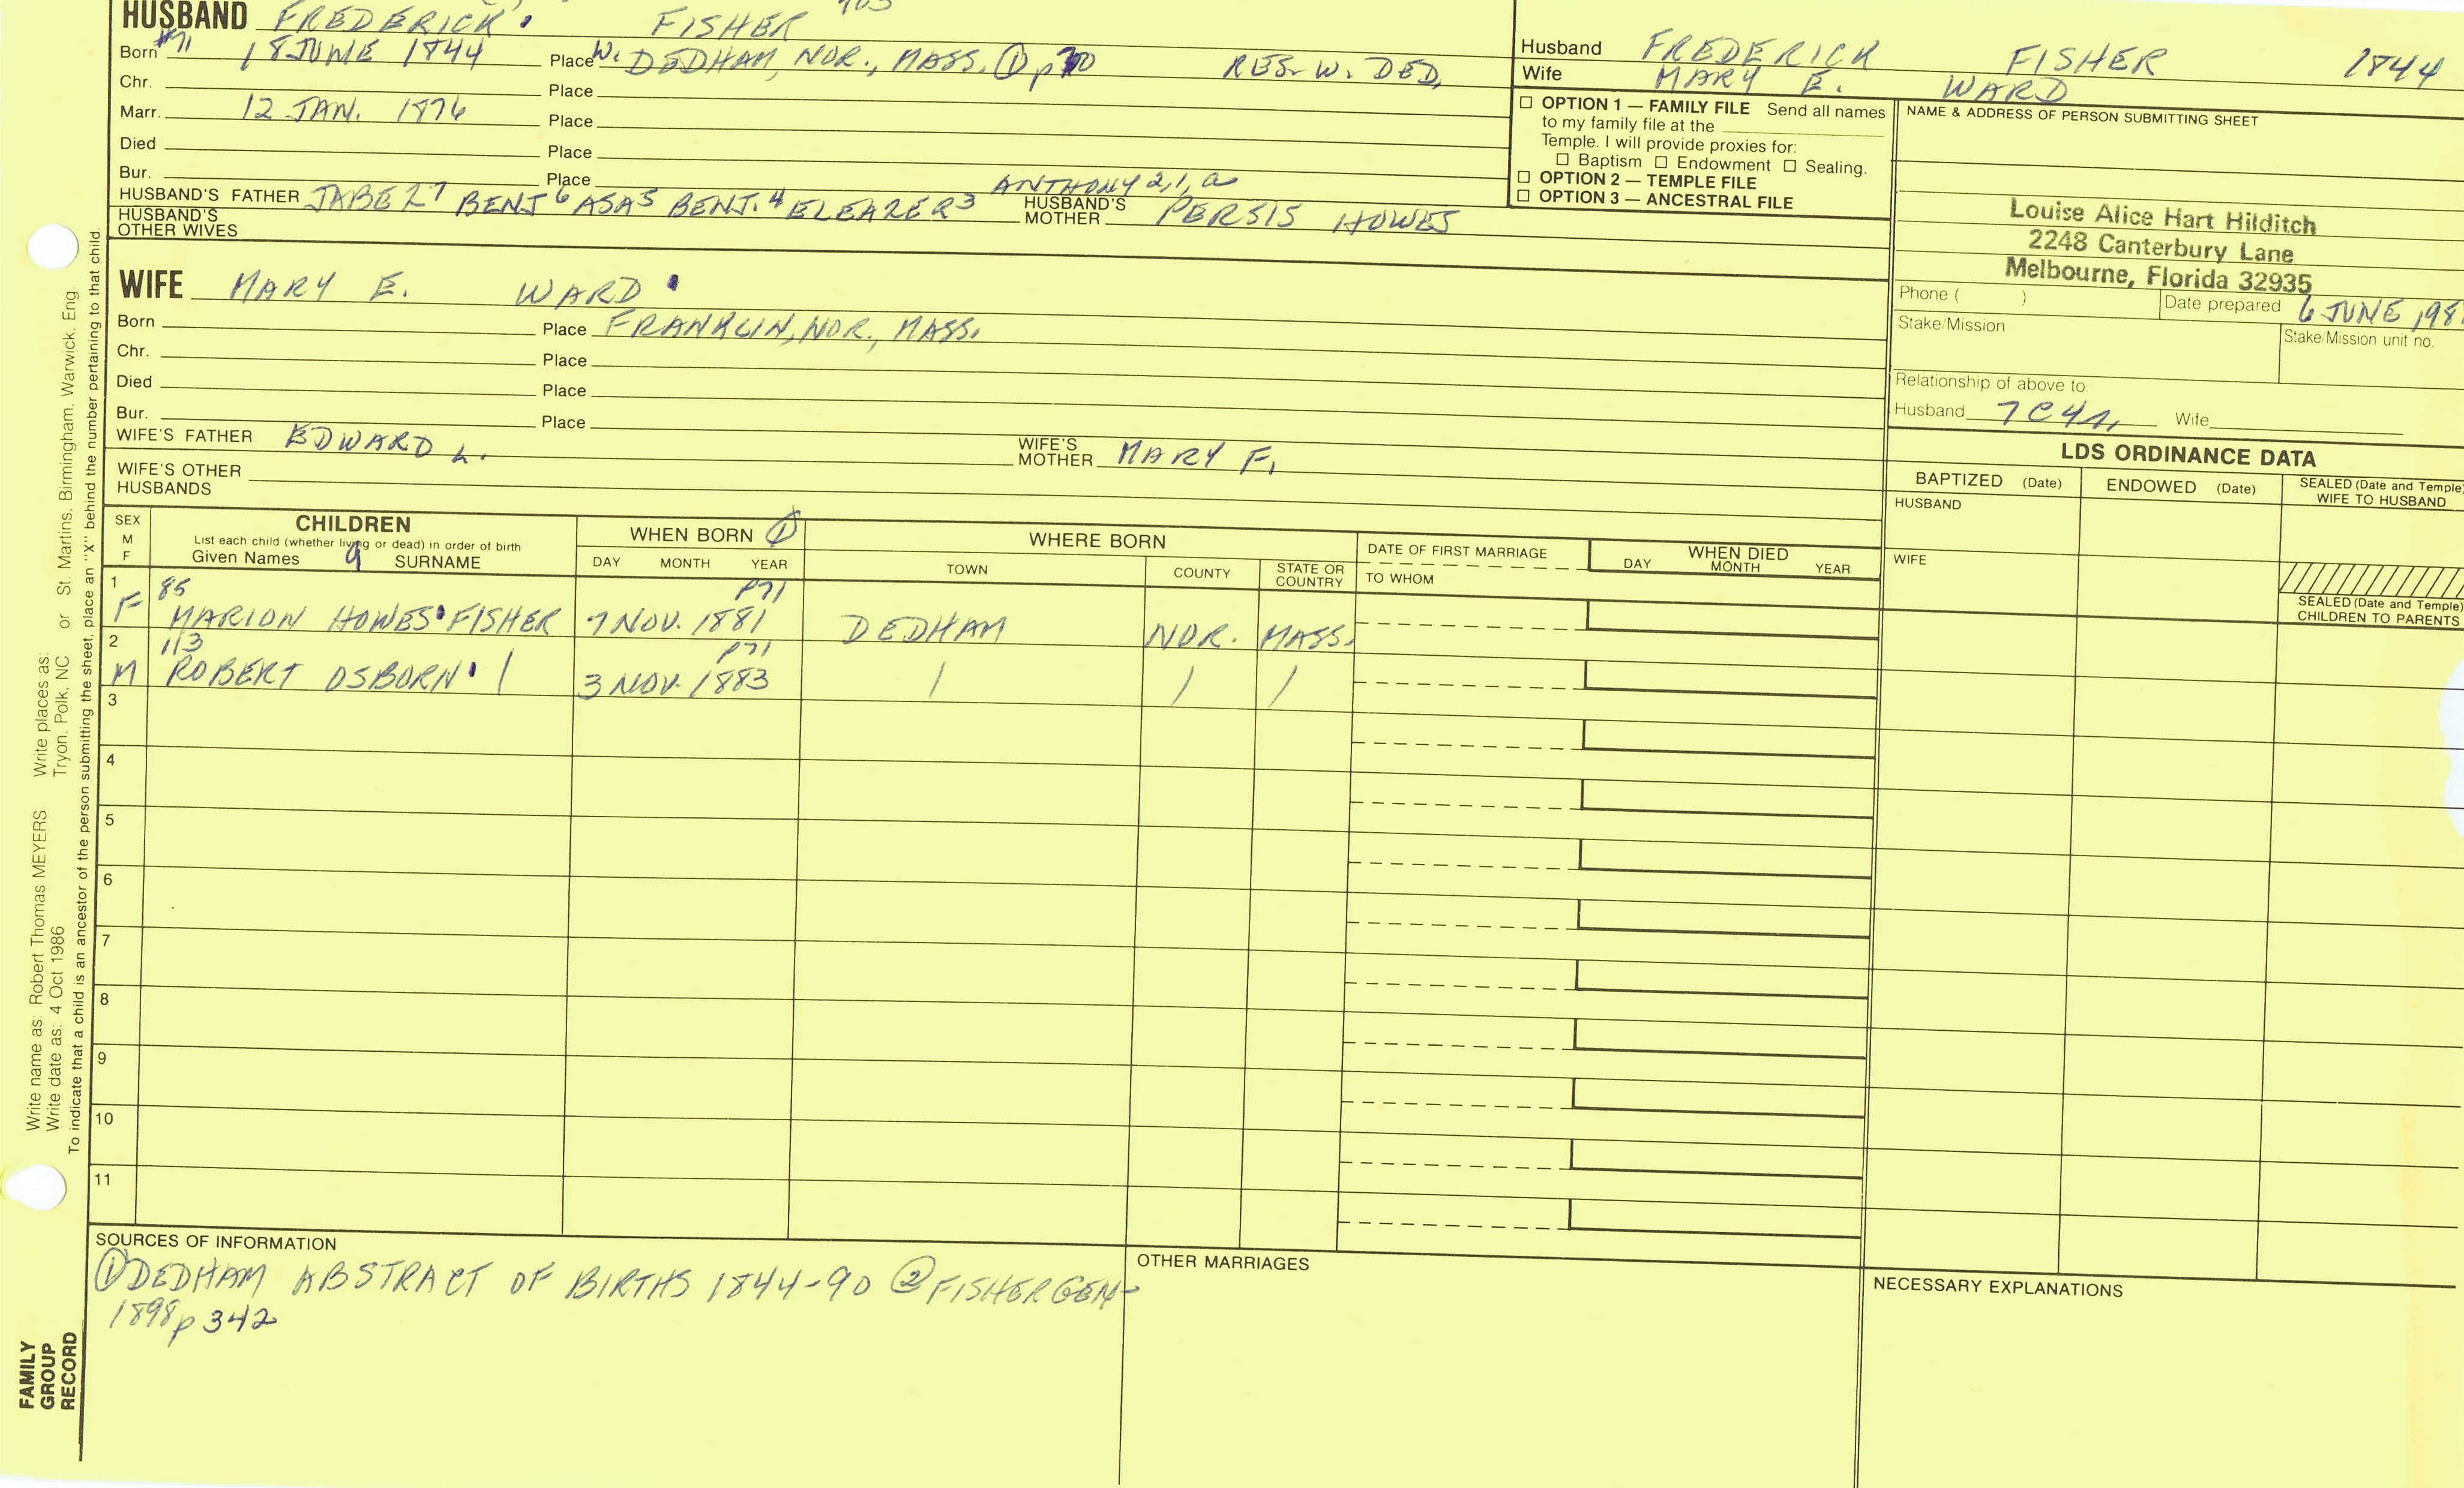 HUSBAND FREDERICK FISHER
Born #71 18 JUNE 1844 Place W. DEDHAM, NOR., MASS. ① p 70 RES- W. DED,
Chr. Place
Marr. 12 JAN. 1876 Place
Died Place
Bur. Place
ANTHONY 2,1,a
HUSBAND'S FATHER JABEZ 7 BENJ 6 ASA 5 BENJ. 4 ELEAZER 3 HUSBAND'S MOTHER PERSIS HOWES
HUSBAND'S OTHER WIVES
Husband FREDERICK FISHER 1844
Wife MARY E. WARD
☐ OPTION 1 — FAMILY FILE Send all names
to my family file at the
Temple. I will provide proxies for:
☐ Baptism ☐ Endowment ☐ Sealing.
☐ OPTION 2 — TEMPLE FILE
☐ OPTION 3 — ANCESTRAL FILE
NAME & ADDRESS OF PERSON SUBMITTING SHEET
Louise Alice Hart Hilditch
2248 Canterbury Lane
Melbourne, Florida 32935
Phone ( ) Date prepared 6 JUNE 198
Stake/Mission Stake/Mission unit no.
Relationship of above to
Husband 7C4R, Wife
WIFE MARY E. WARD
Born Place FRANKLIN, NOR., MASS.
Chr. Place
Died Place
Bur. Place
WIFE'S FATHER EDWARD L. WIFE'S MOTHER MARY F.
WIFE'S OTHER HUSBANDS
LDS ORDINANCE DATA
BAPTIZED (Date) ENDOWED (Date) SEALED (Date and Temple)
WIFE TO HUSBAND
HUSBAND
WIFE
SEALED (Date and Temple)
CHILDREN TO PARENTS
SEX
M
F
CHILDREN
List each child (whether living or dead) in order of birth
Given Names 9 SURNAME
WHEN BORN ①
DAY MONTH YEAR
WHERE BORN
TOWN COUNTY STATE OR COUNTRY
DATE OF FIRST MARRIAGE
TO WHOM
WHEN DIED
DAY MONTH YEAR
1 85 P71
F MARION HOWES FISHER 7 NOV. 1881 DEDHAM NOR. MASS.
2 113 P71
M ROBERT OSBORN / 3 NOV. 1883 / / /
3
4
5
6
7
8
9
10
11
SOURCES OF INFORMATION
① DEDHAM ABSTRACT OF BIRTHS 1844-90 ② FISHER GEN-
1898 p 342
OTHER MARRIAGES
NECESSARY EXPLANATIONS
Write name as: Robert Thomas MEYERS Write places as:
Write date as: 4 Oct 1986 Tryon, Polk, NC or St. Martins, Birmingham, Warwick, Eng.
To indicate that a child is an ancestor of the person submitting the sheet, place an "X" behind the number pertaining to that child.
FAMILY
GROUP
RECORD